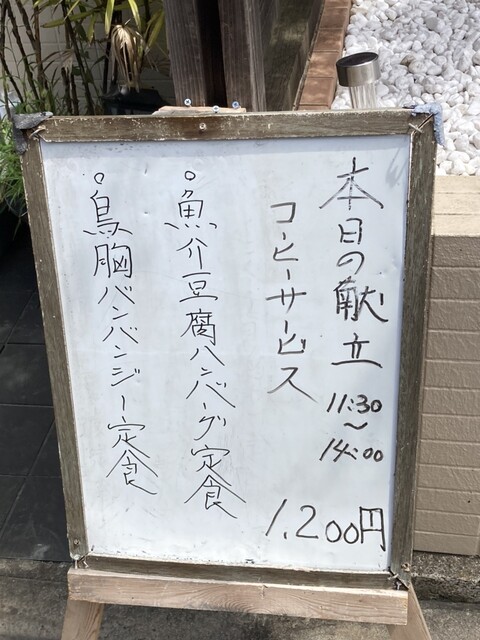 本日の献立
11:30
~
14:00
コーヒーサービス
1,200円
○魚介豆腐ハンバーグ定食
○鳥胸バンバンジー定食